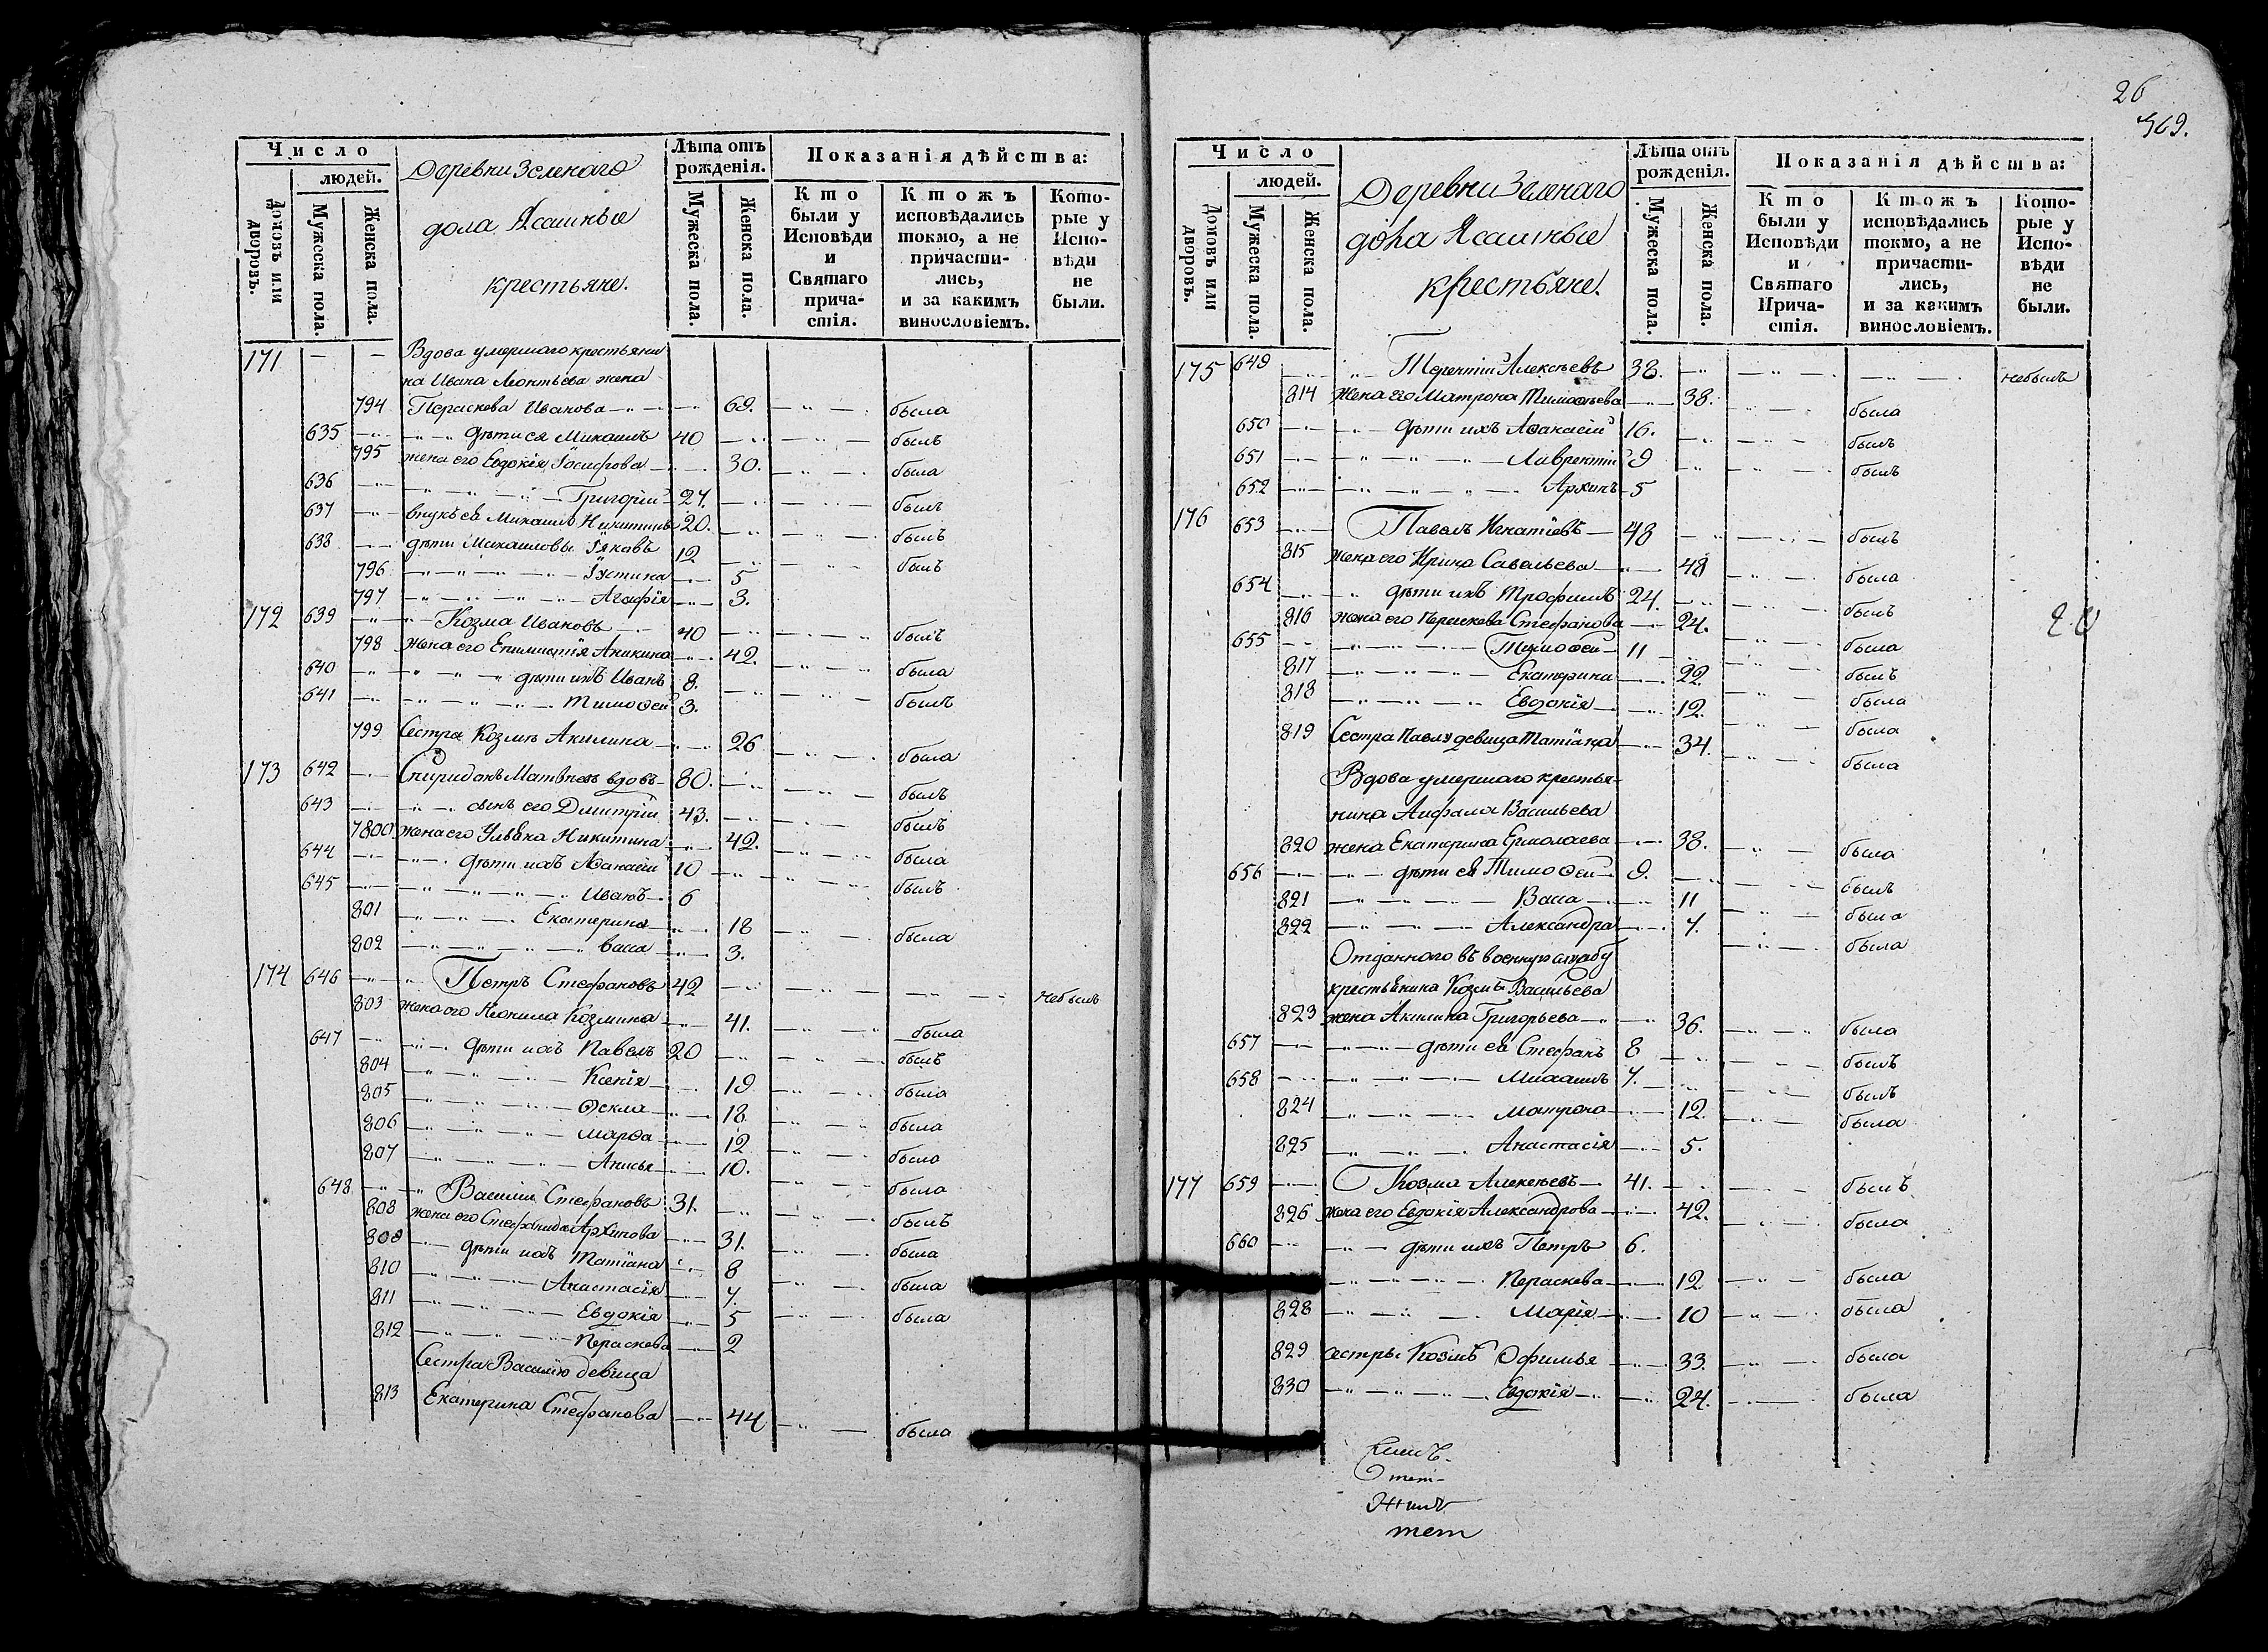 Число
людей.
Домовъ или дворовъ.
Мужеска пола.
Женска пола.
Деревни Зеленаго
дола Ясашные
крестьяне.
Лѣта отъ рожденія.
Мужеска пола.
Женска пола.
Показанія дѣйства:
Кто были у Исповѣди и Святаго причастія.
Ктожъ исповѣдались токмо, а не причастились, и за какимъ винословіемъ.
Которые у Исповѣди не были.
171 — — Вдова умершаго крестьяни
на Ивана Леонтьева жена
794 Пераскева Иванова 69. была
635 дѣти ея Михаилъ 40 былъ
795 жена его Евдокія Іосифова 30. была
636 Григорій 27. былъ
637 внукъ ея Михаилъ Никитинъ 20. былъ
638 дѣти Михаиловы Іяковъ 12 былъ
796 Іустина 5
797 Агафія 3.
172 639 Козма Ивановъ 40 былъ
798 жена его Епимистія Аникина 42. была
640 дѣти ихъ Иванъ 8. былъ
641 Тимоѳей 3.
799 Сестра Козмѣ Акилина 26 была
173 642 Спиридонъ Матвѣевъ вдовъ 80. былъ
643 сынъ его Дмитрій 43. былъ
7800 жена его Ульяна Никитина 42. была
644 дѣти ихъ Аѳанасій 10 былъ
645 Иванъ 6
801 Екатерина 18 была
802 Васса 3.
174 646 Петръ Стефановъ 42 небылъ
803 жена его Неонила Козмина 41. была
647 дѣти ихъ Павелъ 20 былъ
804 Ксенія 19 была
805 Ѳекла 18 была
806 Марѳа 12 была
807 Анисья 10. была
648 Василій Стефановъ 31. былъ
808 жена его Стефанида Архипова 31. была
809 дѣти ихъ Татіана 8 была
810 Анастасія 7. была
811 Евдокія 5
812 Пераскева 2
Сестра Василію девица
813 Екатерина Стефанова 44 была
26
369.
Число
людей.
Домовъ или дворовъ.
Мужеска пола.
Женска пола.
Деревни Зеленаго
дола Ясашные
крестьяне.
Лѣта отъ рожденія.
Мужеска пола.
Женска пола.
Показанія дѣйства:
Кто были у Исповѣди и Святаго Причастія.
Ктожъ исповѣдались токмо, а не причастились, и за какимъ винословіемъ.
Которые у Исповѣди не были.
175 649 Терентій Алексѣевъ 38. небылъ
814 жена его Матрона Тимоѳѣева 38. была
650 дѣти ихъ Аѳанасій 16. былъ
651 Лаврентій 9 былъ
652 Архипъ 5
176 653 Павелъ Игнатіевъ 48 былъ
815 жена его Ирина Савельева 48 была
654 дѣти ихъ Трофимъ 24. былъ
816 жена его Пераскева Стефанова 24. была
655 Тимоѳей 11 былъ
817 Екатерина 22. была
818 Евдокія 12. была
819 Сестра Павлу девица Татіана 34. была
Вдова умершаго крестья-
нина Анфала Васильева
820 жена Екатерина Ермолаева 38. была
656 дѣти ея Тимоѳей 9. былъ
821 Васса 11 была
822 Александра 7. была
Отданного въ военную службу
крестьянина Козмы Васильева
823 жена Акилина Григорьева 36. была
657 дѣти ея Стефанъ 8 былъ
658 Михаилъ 7. былъ
824 Матрона 12. была
825 Анастасія 5.
177 659 Козма Алексѣевъ 41. былъ
826 жена его Евдокія Александрова 42. была
660 дѣти ихъ Петръ 6.
Пераскева 12 была
828 Марія 10 была
829 сестры Козмѣ Офимья 33. была
830 Евдокія 24. была